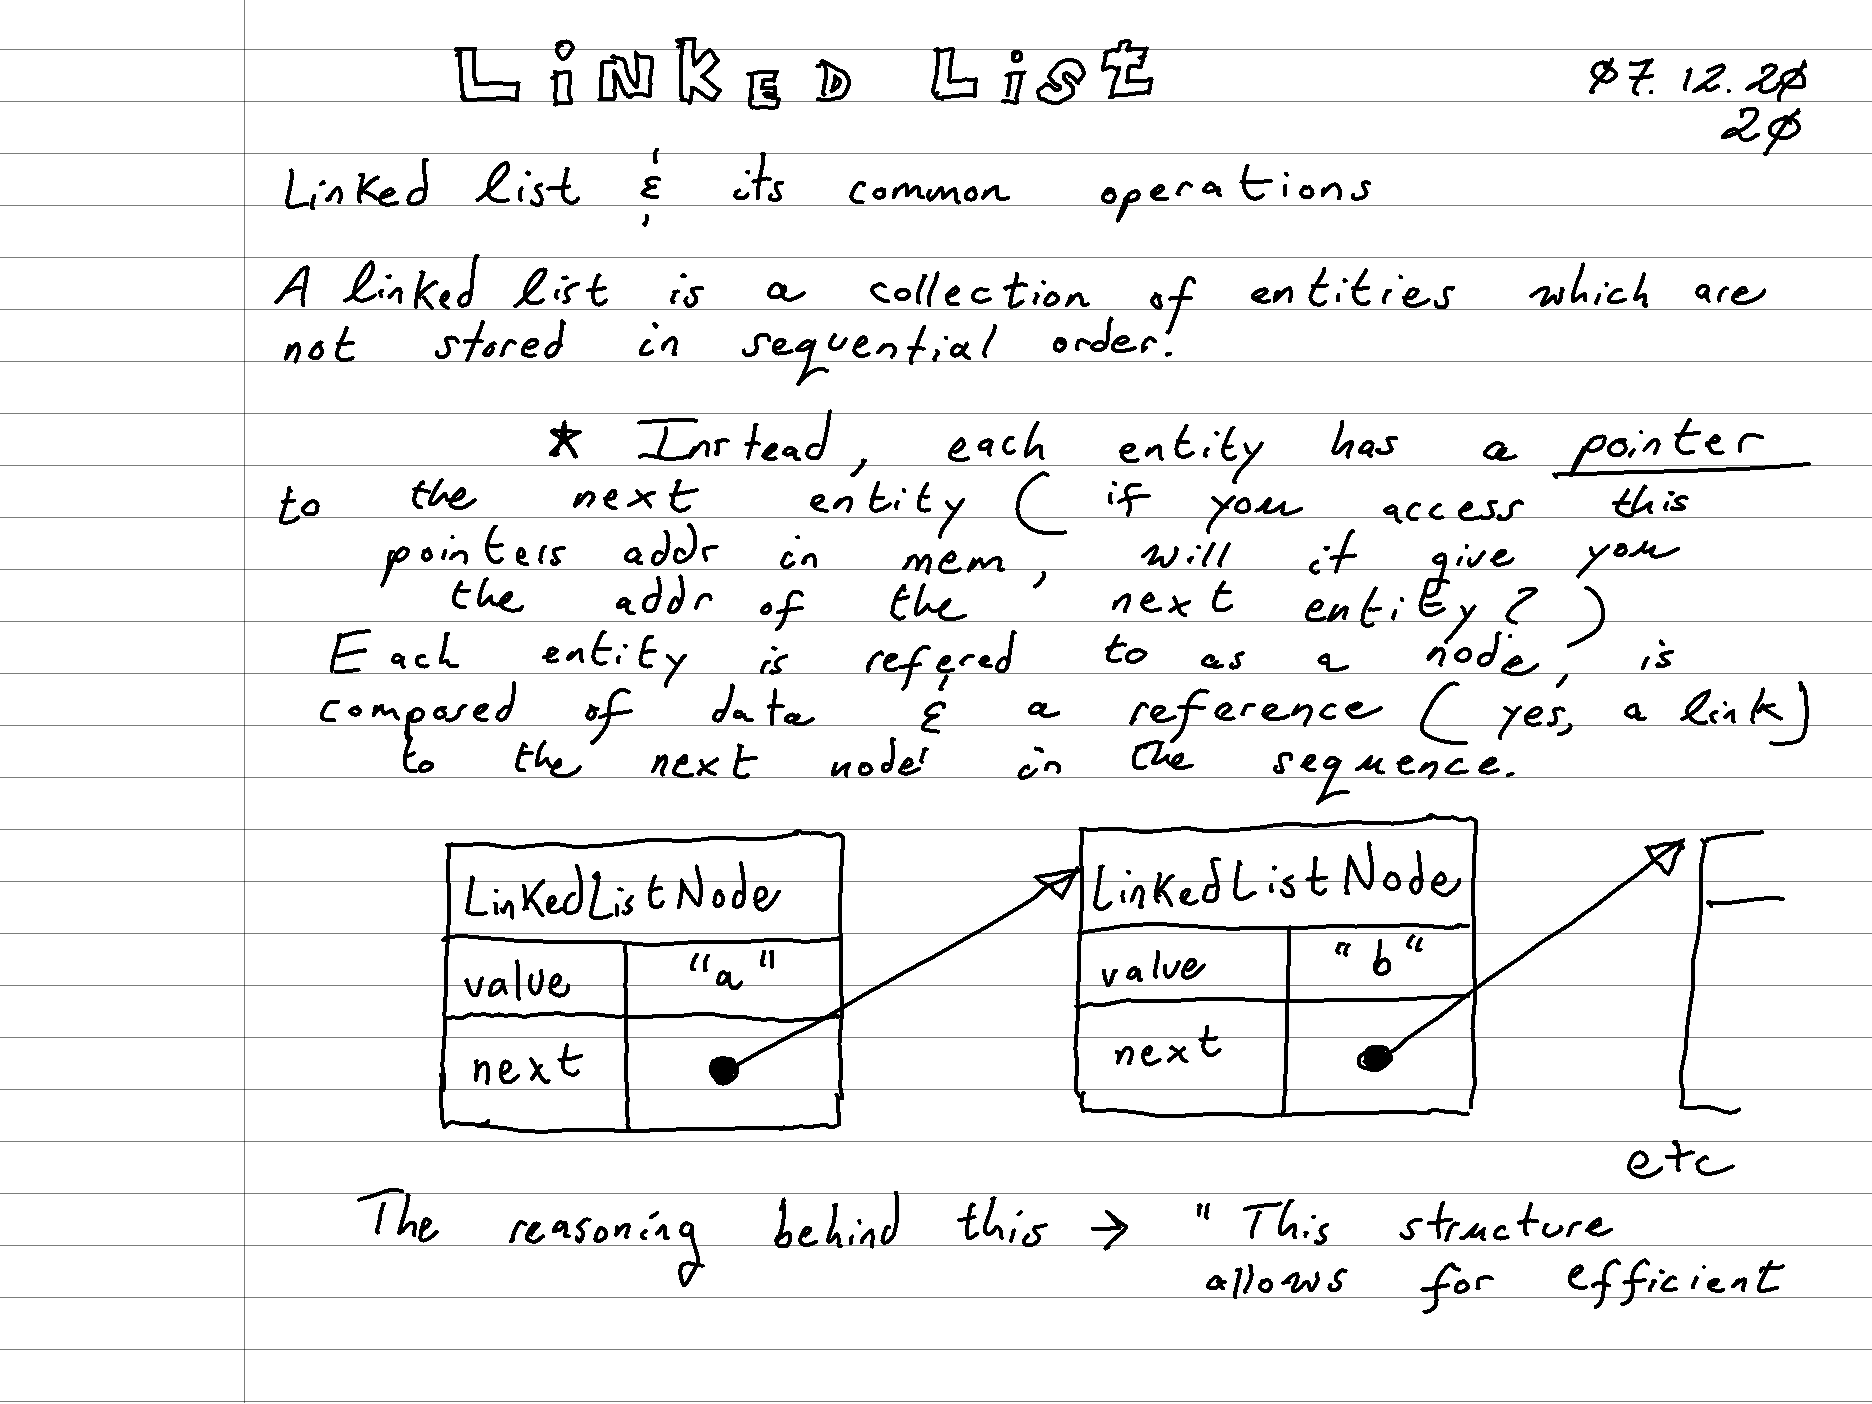 LiNKED LiST
07.12.20
20
Linked list & its common operations
A linked list is a collection of entities which are
not stored in sequential order.
* Instead, each entity has a pointer
to the next entity ( if you access this
pointers addr in mem, will it give you
the addr of the next entity? )
Each entity is refered to as a node, is
composed of data & a reference ( yes, a link)
to the next node in the sequence.
LinkedListNode
value "a"
next
LinkedListNode
value "b"
next
etc
The reasoning behind this → "This structure
allows for efficient